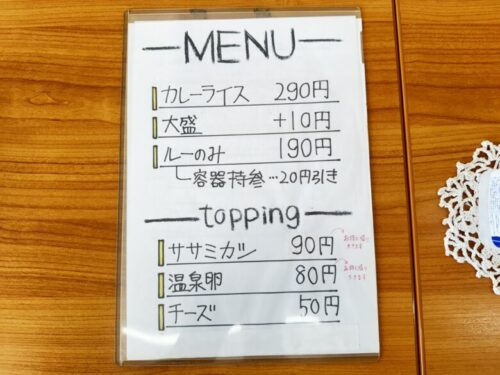 MENU
カレーライス 290円
大盛 +10円
ルーのみ 190円
容器持参…20円引き
topping
ササミカツ 90円
温泉卵 80円
チーズ 50円